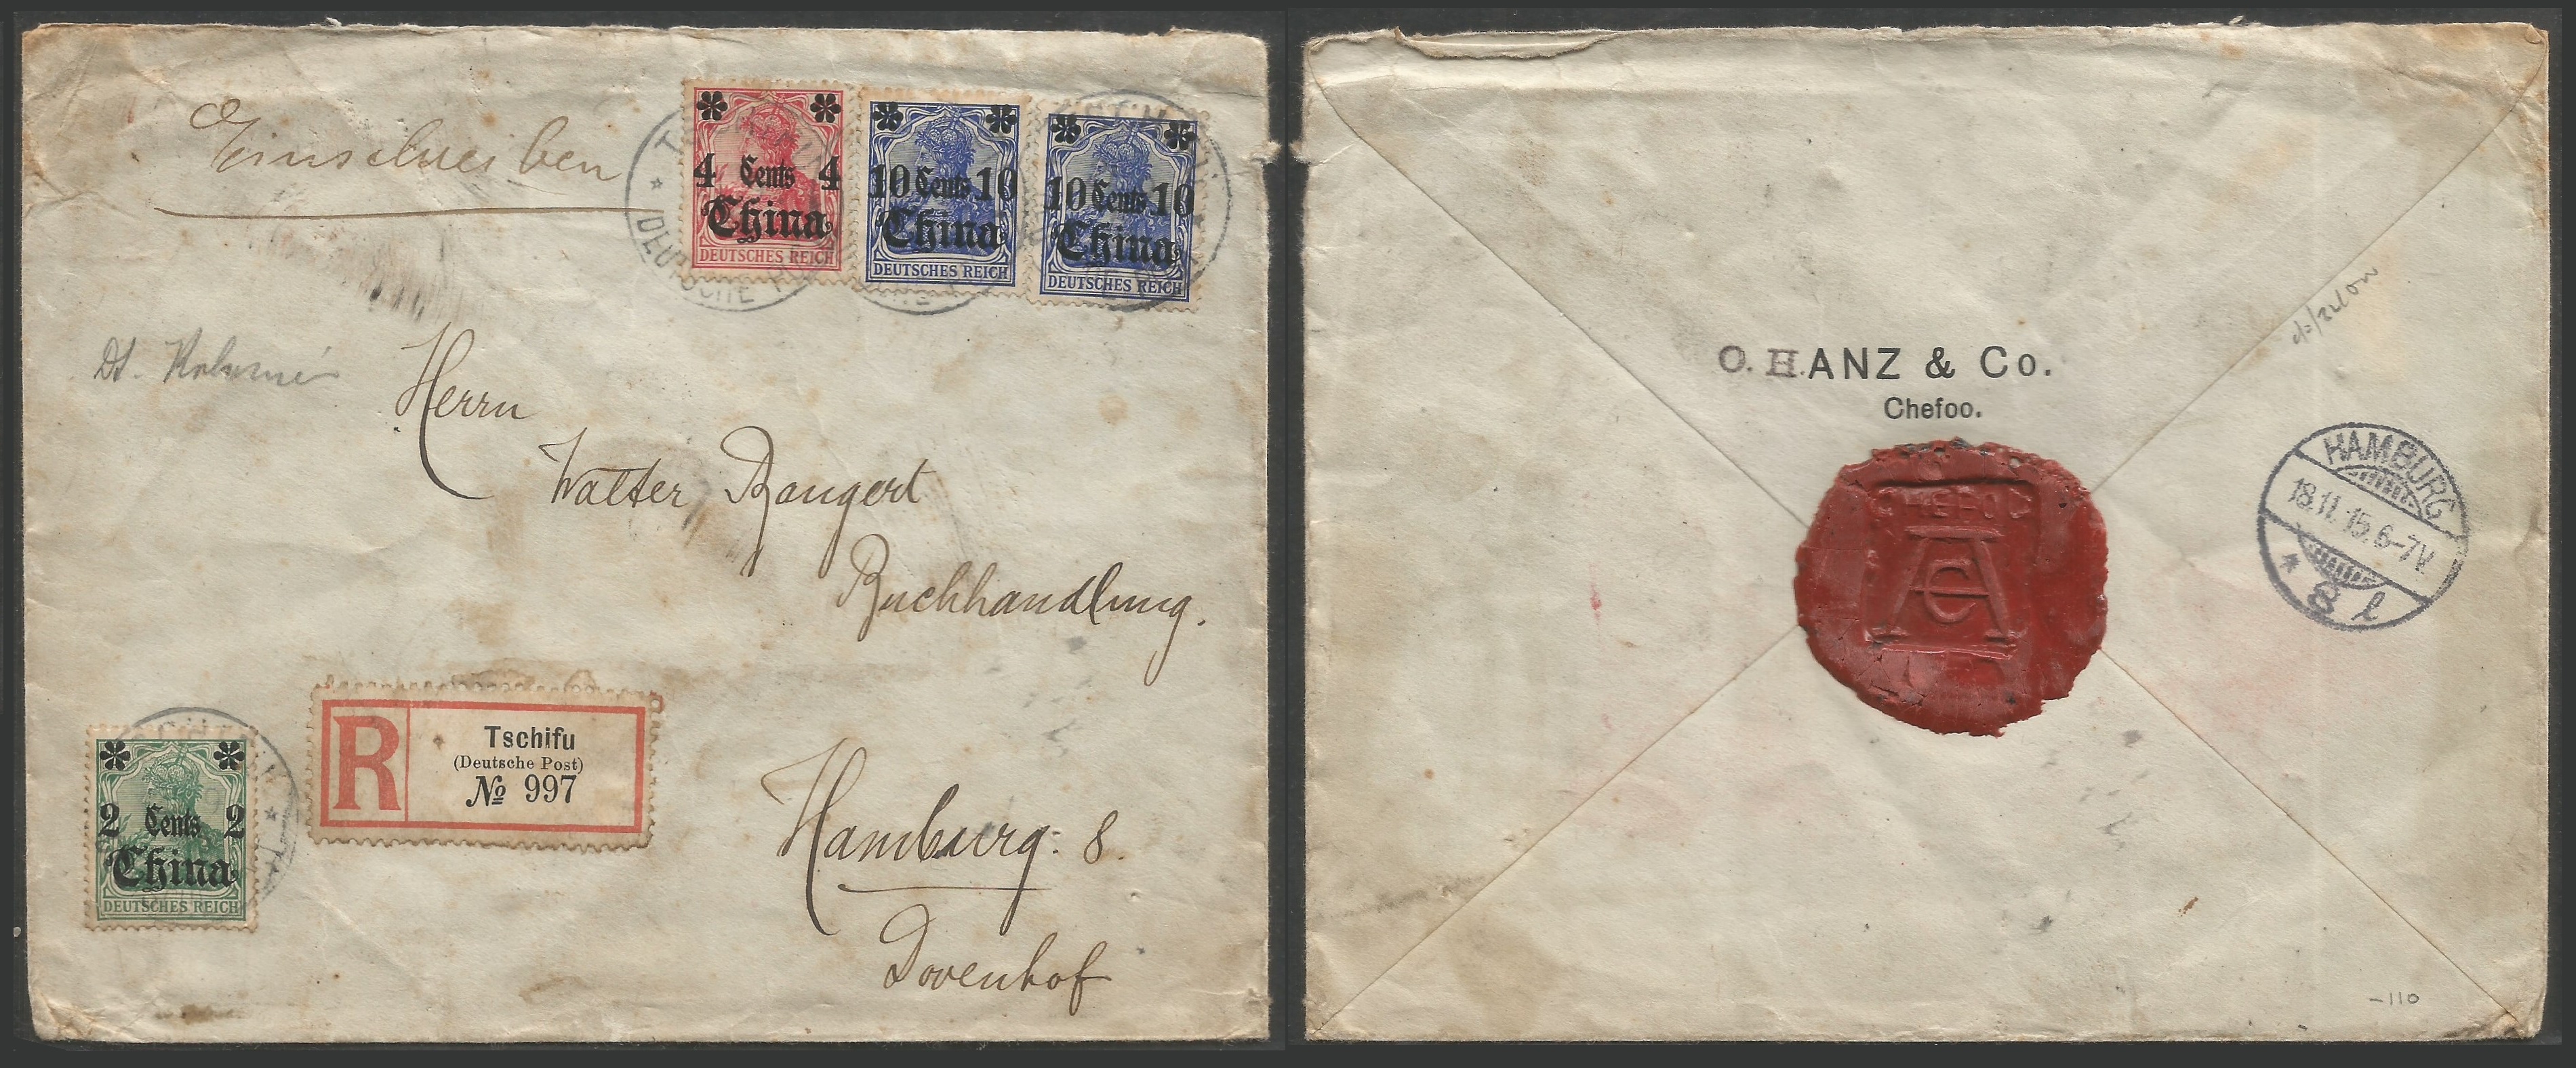 Einschreiben
4 Cents 4
China
DEUTSCHES REICH
10 Cents 10
China
DEUTSCHES REICH
10 Cents 10
China
DEUTSCHES REICH
DEUTSCHE
Herrn
Walter Bangert
Buchhandlung.
R
Tschifu
(Deutsche Post)
№ 997
2 Cents 2
China
DEUTSCHES REICH
Hamburg: 8.
Dovenhof
O. H. ANZ & Co.
Chefoo.
CHEFOO
HAMBURG
18.11.15.6-7V.
* 8 l
-110